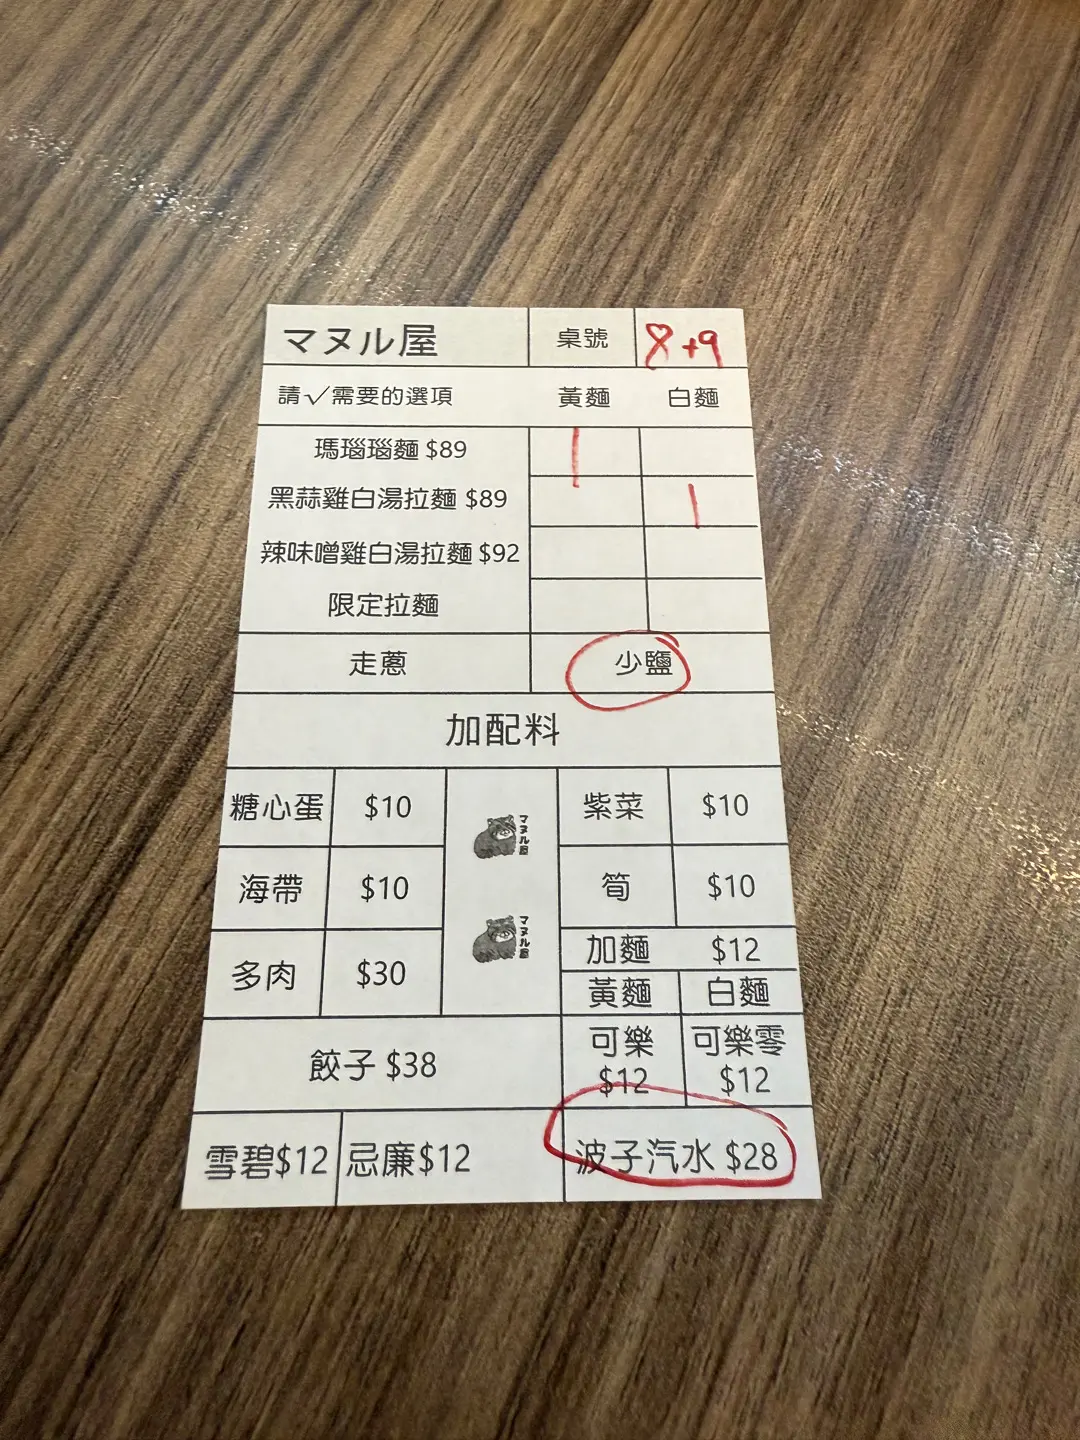 マヌル屋 桌號 8+9
請√需要的選項 黃麵 白麵
瑪瑙瑙麵 $89 |
黑蒜雞白湯拉麵 $89 |
辣味噌雞白湯拉麵 $92
限定拉麵
走蔥 少鹽
加配料
糖心蛋 $10 マヌル屋 紫菜 $10
海帶 $10 筍 $10
多肉 $30 マヌル屋 加麵 $12
黃麵 白麵
餃子 $38 可樂 $12 可樂零 $12
雪碧$12 忌廉$12 波子汽水 $28